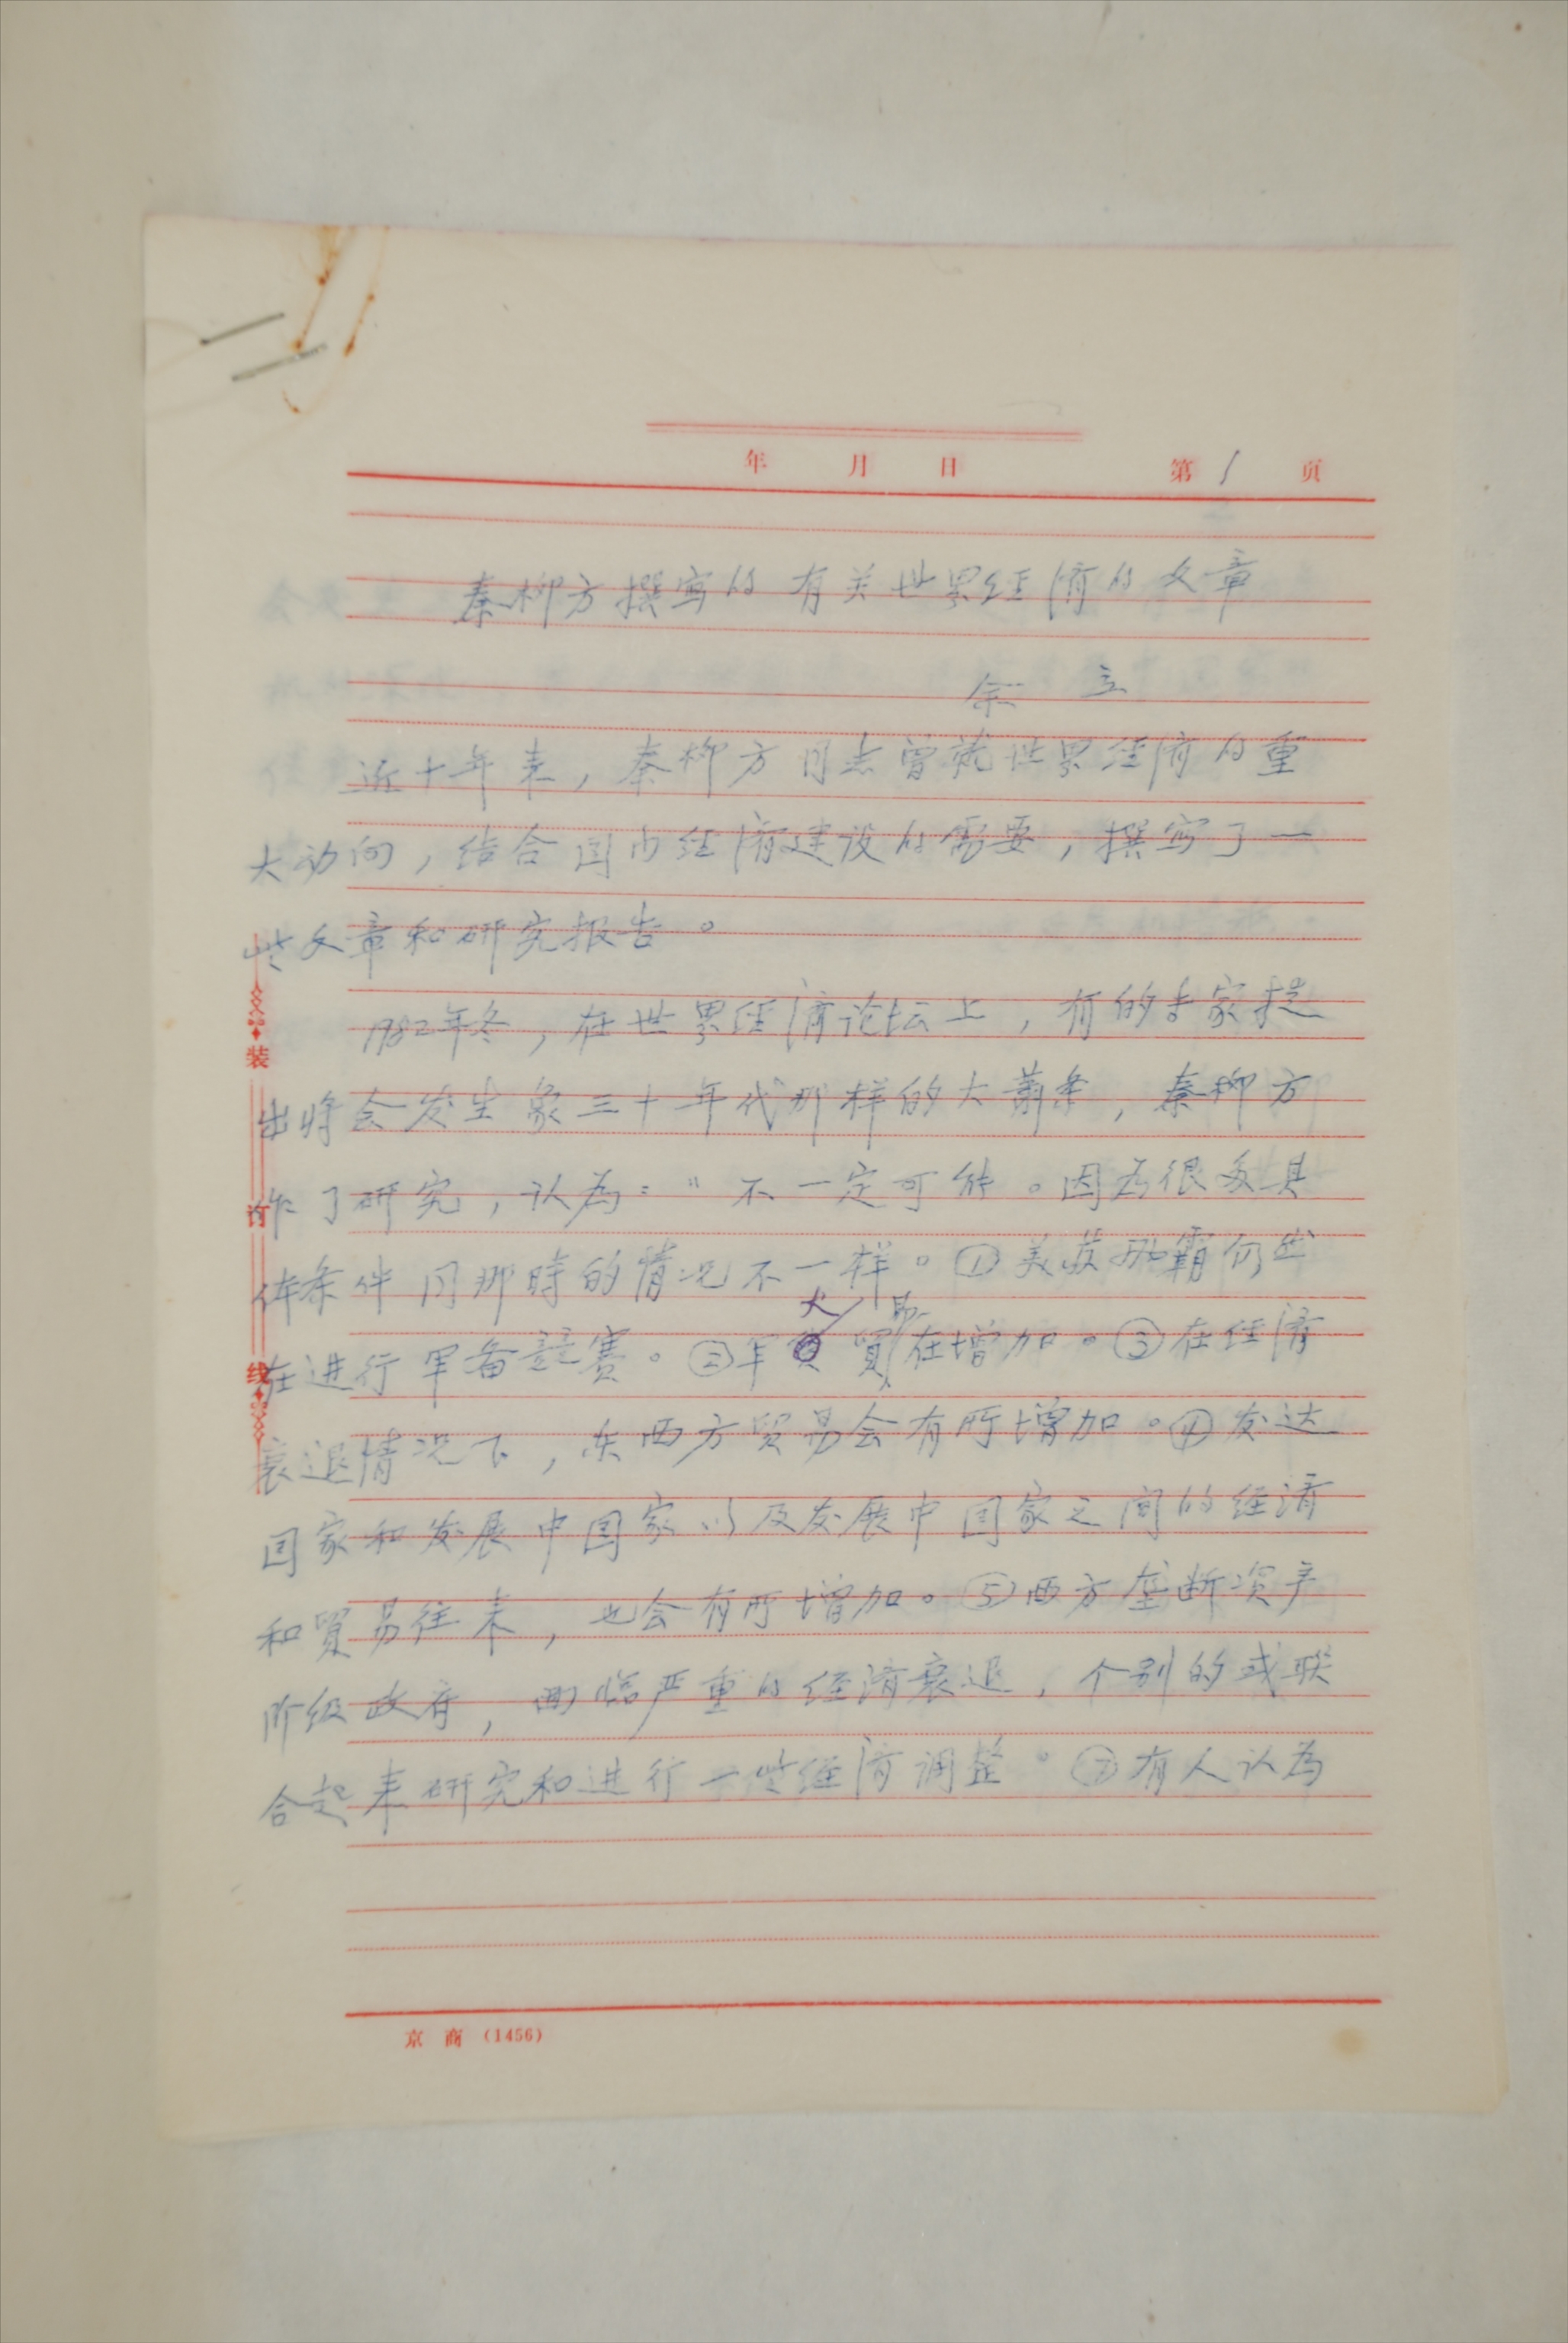 年 月 日 第 1 页
秦柳方撰写的有关世界经济的文章
余 立
近十年来，秦柳方同志曾就世界经济的重
大动向，结合国内经济建设的需要，撰写了一
些文章和研究报告。
1982年冬，在世界经济论坛上，有的专家提
出将会发生象三十年代那样的大萧条，秦柳方
作了研究，认为："不一定可能。因为很多具
体条件同那時的情况不一样。①美苏两霸仍然
在进行军备竞赛。②军火貿易在增加。③在经济
衰退情况下，东西方貿易会有所增加。④发达
国家和发展中国家以及发展中国家之间的经济
和貿易往来，也会有所增加。⑤西方垄断资产
阶级政府，面临严重的经济衰退，个别的或联
合起来研究和进行一些经济调整。⑦有人认为
装
订
线
京 商 (1456)